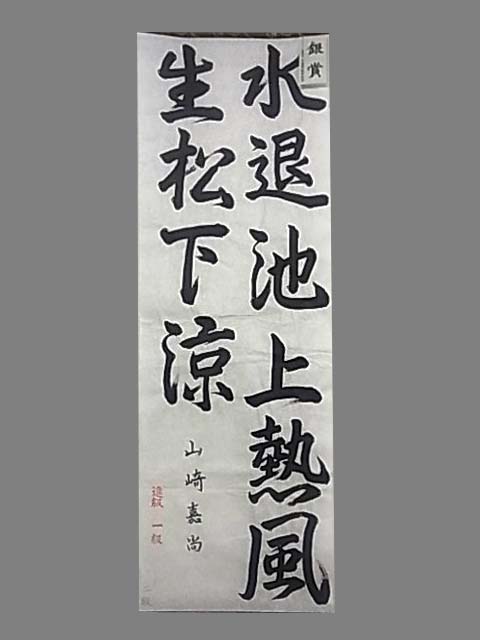 銀賞
水退池上熱風
生松下涼
山崎嘉尚
進級 一級